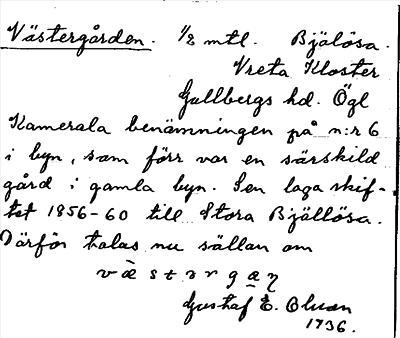 Västergården. 1/2 mtl. Bjälösa.
Vreta Kloster
Gullbergs hd. Ögl
Kamerala benämningen på n:r 6
i byn, som förr var en särskild
gård i gamla byn. Sen laga skif-
tet 1856-60 till Stora Bjällösa.
Därför talas nu sällan om
Gustaf E. Olsson
1936.